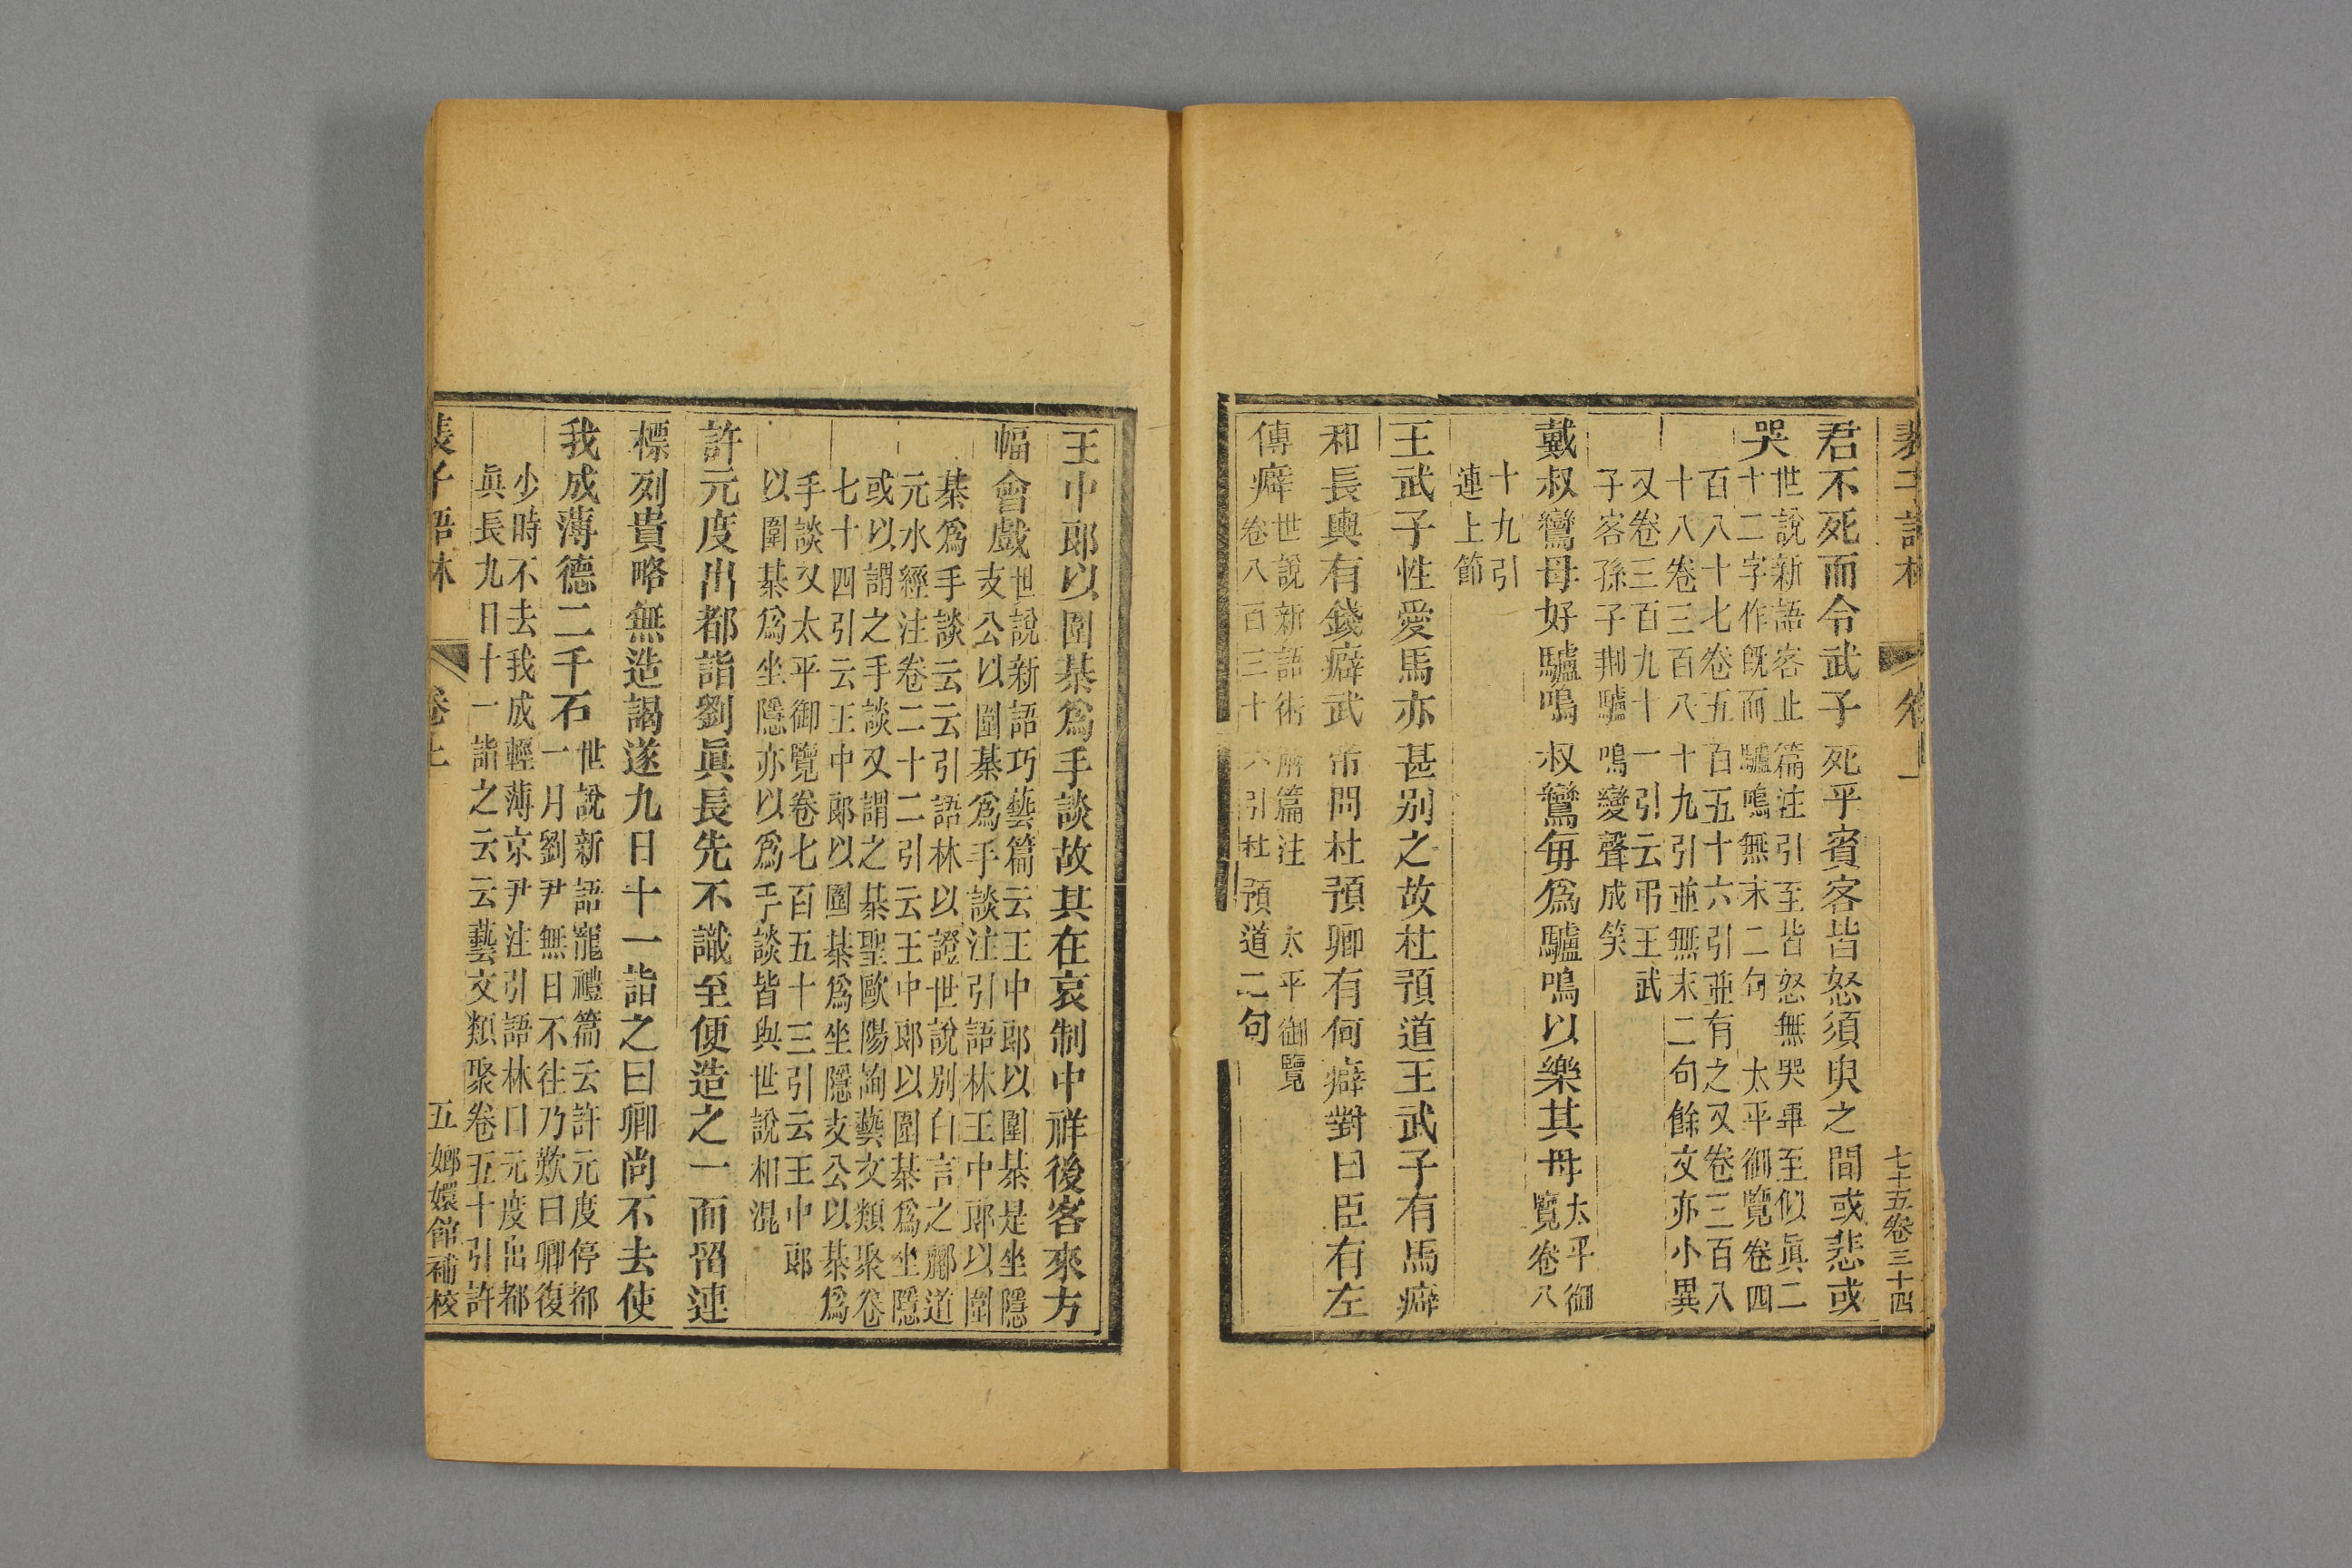 七十五卷三十四
君不死而令武子死乎賓客皆怒須臾之間或悲或
哭
世說新語客止篇注引至皆怒無哭畢至似眞二
十二字作旣而驢鳴無末二句太平御覽卷四
百八十七卷五百五十六引並有之又卷三百八
十八卷三百八十九引並無末二句餘文亦小異
又卷三百九十一引云弔王武
子客孫子荆驢鳴變聲成笑
戴叔鸞母好驢鳴叔鸞每爲驢鳴以樂其母
太平御
覽卷八
十九引
連上節
王武子性愛馬亦甚別之故杜預道王武子有馬癖
和長輿有錢癖武帝問杜預卿有何癖對曰臣有左
傳癖
世說新語術解篇注太平御覽
卷八百三十六引杜預道二句
王中郎以圍棊爲手談故其在哀制中祥後客來方
幅會戲
世說新語巧藝篇云王中郎以圍棊是坐隱
支公以圍棊爲手談注引語林王中郎以圍
棊爲手談云云引語林以證世說別白言之酈道
元水經注卷二十二引云王中郎以圍棊爲坐隱
或以謂之手談又謂之棊聖歐陽詢藝文類聚卷
七十四引云王中郎以圍棊爲坐隱支公以棊爲
手談又太平御覽卷七百五十三引云王中郎
以圍棊爲坐隱亦以爲手談皆與世說相混
許元度出都詣劉眞長先不識至便造之一面留連
標列貴略無造謁遂九日十一詣之曰卿尚不去使
我成薄德二千石
世說新語寵禮篇云許元度停都
一月劉尹無日不往乃歎曰卿復
少時不去我成輕薄京尹注引語林曰元度出都
眞長九日十一詣之云云藝文類聚卷五十引許
裴子語林
卷上
五
嫏嬛館補校